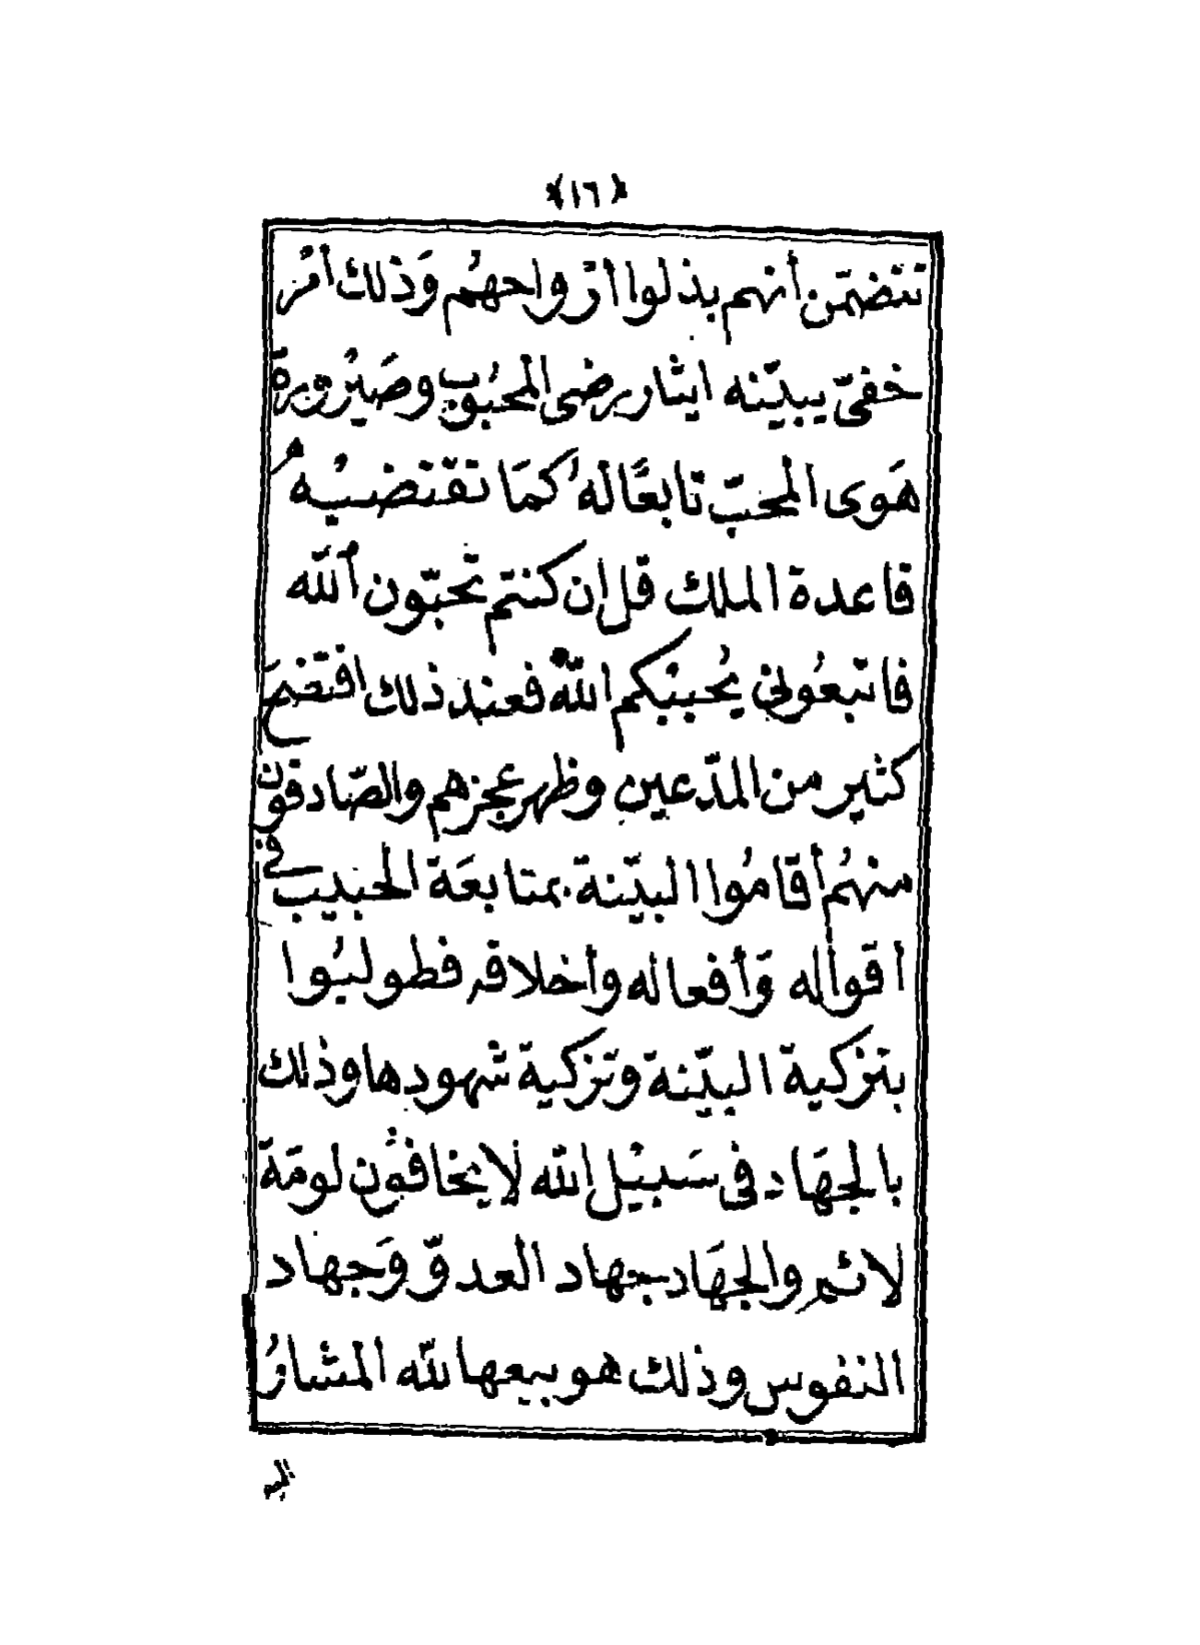 ﴿١٦﴾
تتضمّن أنهم بذلوا أرْواحهُم وَذلك أمْر
خفىّ يبيّنه ايثار رضى المحُبُوب وصَيْرورة
هَوى المحبّ تابعًا لهُ كمَا تقتضيْهُ
قاعدة الملك قل إن كنتم تحبّون ٱللّه
فاتبعُونى يُحببْكم اللّهُ فعند ذلك افتضحَ
كثير من المدّعين وظهر عجزهم والصّادقون
منهُم أقامُوا البيّنة بمتابعَة الحبيب فى
أقواله وَأفعاله وأخلاقه فطولبُوا
بتزكية البيّنة وتزكية شهودها وذلك
بالجهَاد فى سَبيْل اللّه لا يخافون لومَة
لائم والجهَاد جهاد العدوّ وَجهاد
النفوس وذلك هو بيعها للّه المشارُ
اليه